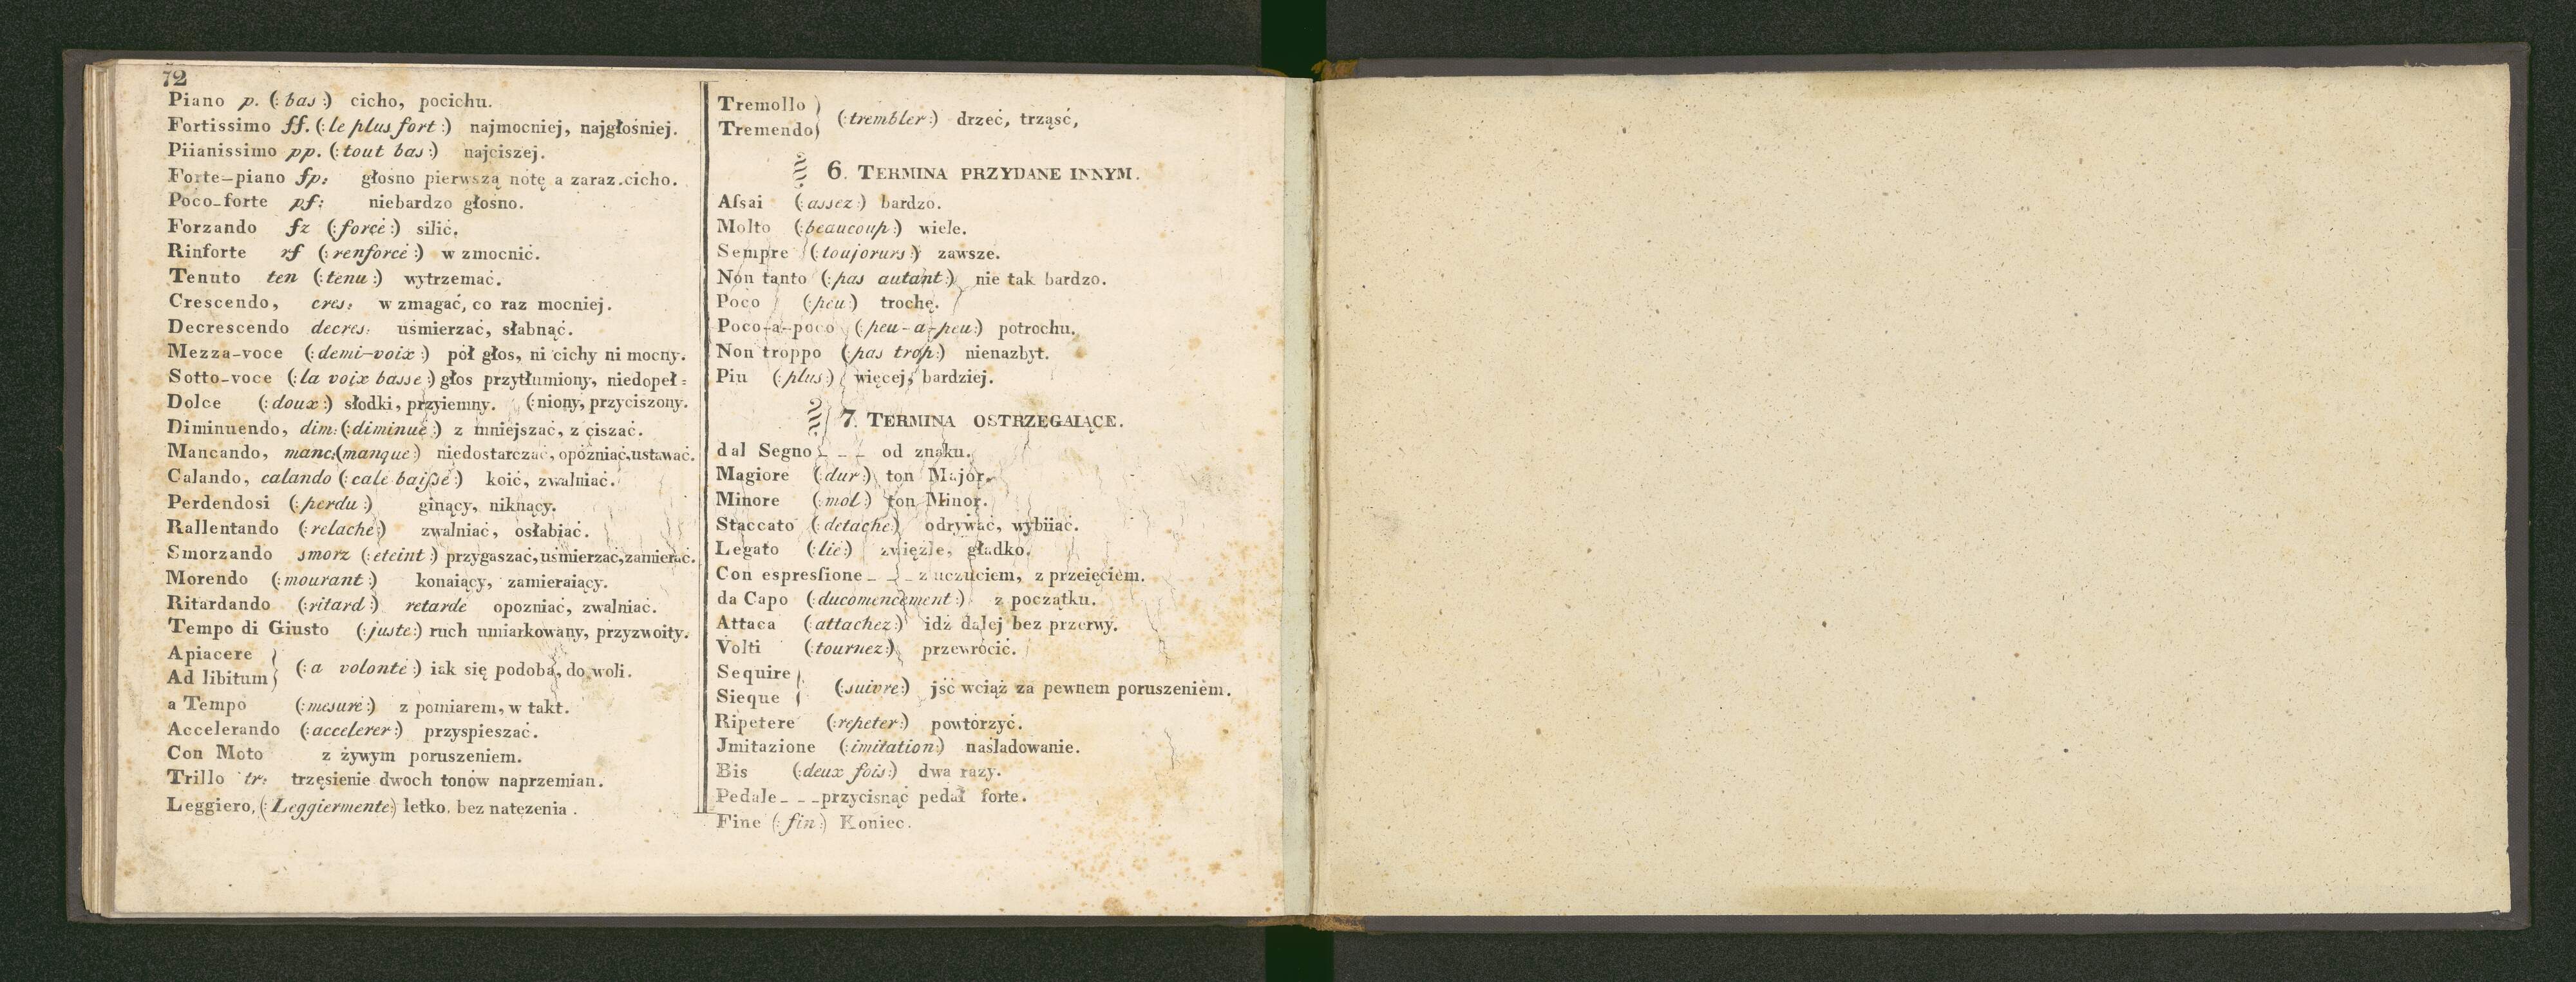 72
Piano p. (: bas :) cicho, pocichu.
Fortissimo ff. (: le plus fort :) najmocniej, najgłośniej.
Piianissimo pp. (: tout bas :) najciszej.
Forte-piano fp: głosno pierwszą notę a zaraz cicho.
Poco-forte pf: niebardzo głosno.
Forzando fz (: forcé :) silić.
Rinforte rf (: renforcé :) w zmocnić.
Tenuto ten (: tenu :) wytrzemać.
Crescendo, cres: w zmagać, co raz mocniej.
Decrescendo decres: uśmierzać, słabnąć.
Mezza-voce (: demi-voix :) pół głos, ni cichy ni mocny.
Sotto-voce (: la voix basse :) głos przytłumiony, niedopeł=
Dolce (: doux :) słodki, przyiemny. (: niony, przyciszony.
Diminuendo, dim: (: diminué :) z mniejszać, z ciszać.
Mancando, manc: (manque :) niedostarczać, opózniać, ustawać.
Calando, calando (: calé baiſsé :) koić, zwalniać.
Perdendosi (: perdu :) ginący, niknący.
Rallentando (: relaché :) zwalniać, osłabiać.
Smorzando smorz (: eteint :) przygaszać, uśmierzać, zamierać.
Morendo (: mourant :) konaiący, zamieraiący.
Ritardando (: ritard :) retarde opozniać, zwalniać.
Tempo di Giusto (: juste :) ruch umiarkowany, przyzwoity.
Apiacere
Ad libitum } (: a volonté :) iak się podoba, do woli.
a Tempo (: mesuré :) z pomiarem, w takt.
Accelerando (: accelerer :) przyspieszać.
Con Moto z żywym poruszeniem.
Trillo tr: trzęsienie dwoch tonów naprzemian.
Leggiero, (: Leggiermente :) letko. bez natęzenia.
Tremollo
Tremendo } (: trembler :) drzeć, trząsć,
6. TERMINA PRZYDANE INNYM.
Aſsai (: assez :) bardzo.
Molto (: beaucoup :) wiele.
Sempre (: toujorurs :) zawsze.
Non tanto (: pas autant :) nie tak bardzo.
Poco (: peu :) trochę.
Poco-a-poco (: peu-a-peu :) potrochu.
Non troppo (: pas trop :) nienazbyt.
Piu (: plus :) więcej, bardziej.
7. TERMINA OSTRZEGAIĄCE.
dal Segno _ _ _ od znaku.
Magiore (: dur :) ton Major.
Minore (: mol :) ton Minor.
Staccato (: detaché :) odrywać, wybiiać.
Legato (: lié :) zwięźle, gładko.
Con espreſsione _ _ _ z uczuciem, z przeięciem.
da Capo (: ducomencement :) z początku.
Attaca (: attachez :) idź dalej bez przerwy.
Volti (: tournez :) przewrócić.
Sequire
Sieque } (: suivre :) jść wciąż za pewnem poruszeniem.
Ripetere (: repeter :) powtórzyć.
Jmitazione (: imitation :) naśladowanie.
Bis (: deux fois :) dwa razy.
Pedale _ _ _ przycisnąć pedał forte.
Fine (: fin :) Koniec.